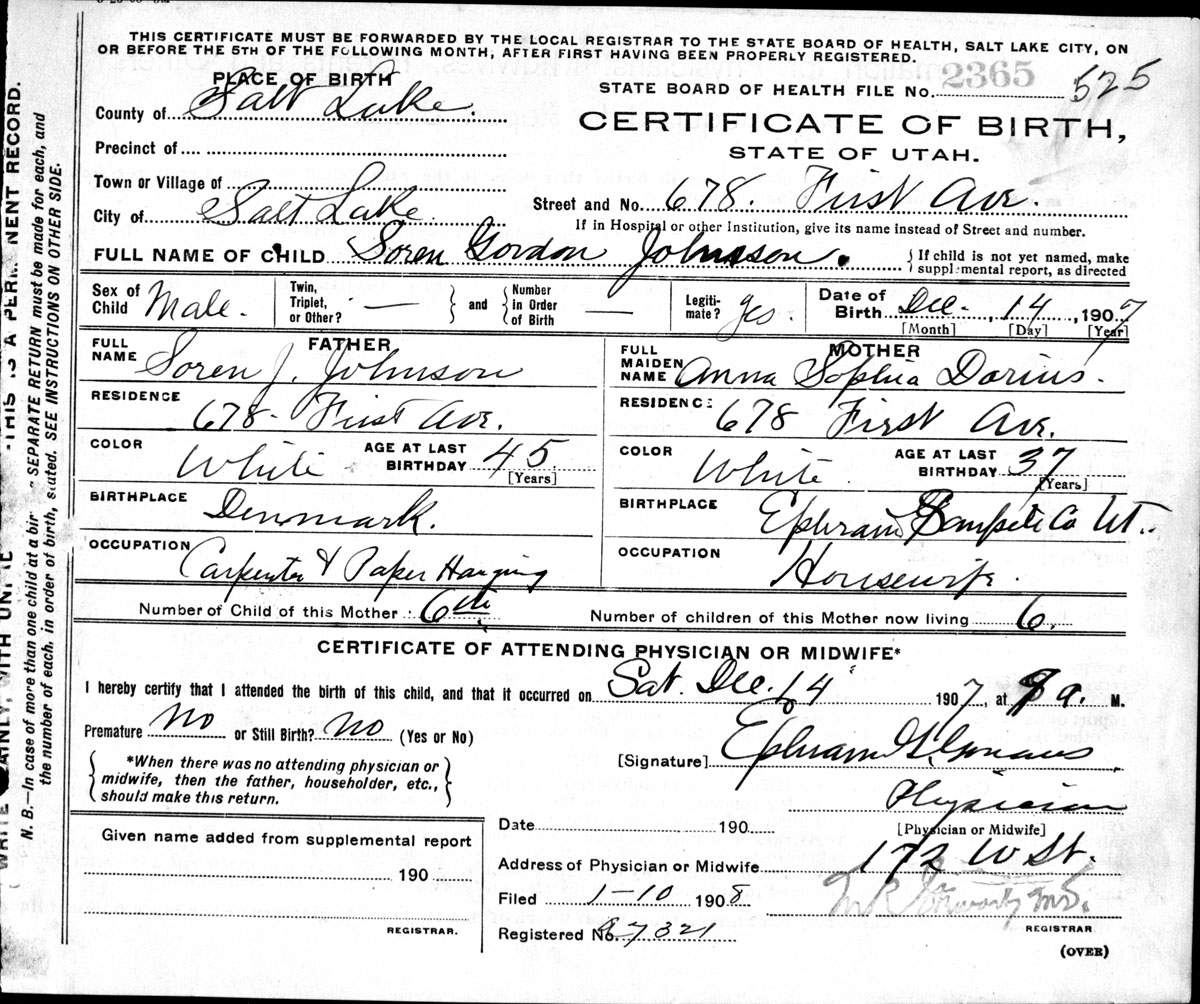 THIS CERTIFICATE MUST BE FORWARDED BY THE LOCAL REGISTRAR TO THE STATE BOARD OF HEALTH, SALT LAKE CITY, ON
OR BEFORE THE 5TH OF THE FOLLOWING MONTH, AFTER FIRST HAVING BEEN PROPERLY REGISTERED.
PLACE OF BIRTH
STATE BOARD OF HEALTH FILE No. 2365 525
County of Salt Lake
CERTIFICATE OF BIRTH,
STATE OF UTAH.
Precinct of
Town or Village of
City of Salt Lake
Street and No. 678. First Ave.
If in Hospital or other Institution, give its name instead of Street and number.
FULL NAME OF CHILD Soren Gordon Johnson.
{If child is not yet named, make
supplemental report, as directed
Sex of Child Male.
Twin, Triplet, or Other? — } and { Number in Order of Birth —
Legitimate? yes.
Date of Birth Dec. 14, 1907
[Month] [Day] [Year]
FATHER
FULL NAME Soren J. Johnson
RESIDENCE 678- First Ave.
COLOR White AGE AT LAST BIRTHDAY 45 [Years]
BIRTHPLACE Denmark.
OCCUPATION Carpenter & Paper Hanging
MOTHER
FULL MAIDEN NAME Anna Sophia Dorius.
RESIDENCE 678 First Ave.
COLOR White AGE AT LAST BIRTHDAY 37 [Years]
BIRTHPLACE Ephraim Sanpete Co Ut.
OCCUPATION Housewife.
Number of Child of this Mother: 6th.
Number of children of this Mother now living 6.
CERTIFICATE OF ATTENDING PHYSICIAN OR MIDWIFE*
I hereby certify that I attended the birth of this child, and that it occurred on Sat. Dec. 14 1907, at a. M.
Premature No or Still Birth? No (Yes or No)
[Signature] Ephraim G.
*When there was no attending physician or
midwife, then the father, householder, etc.,
should make this return.
Physician
[Physician or Midwife]
Date 190
Address of Physician or Midwife 172 W St.
Filed 1-10 1908
Registered No. 7321
M.D.
REGISTRAR
(OVER)
Given name added from supplemental report
190
REGISTRAR.
WITH THIS IS A PERMANENT RECORD.
N. B.—In case of more than one child at a SEPARATE RETURN must be made for each, and
the number of each, in order of birth, stated. SEE INSTRUCTIONS ON OTHER SIDE.